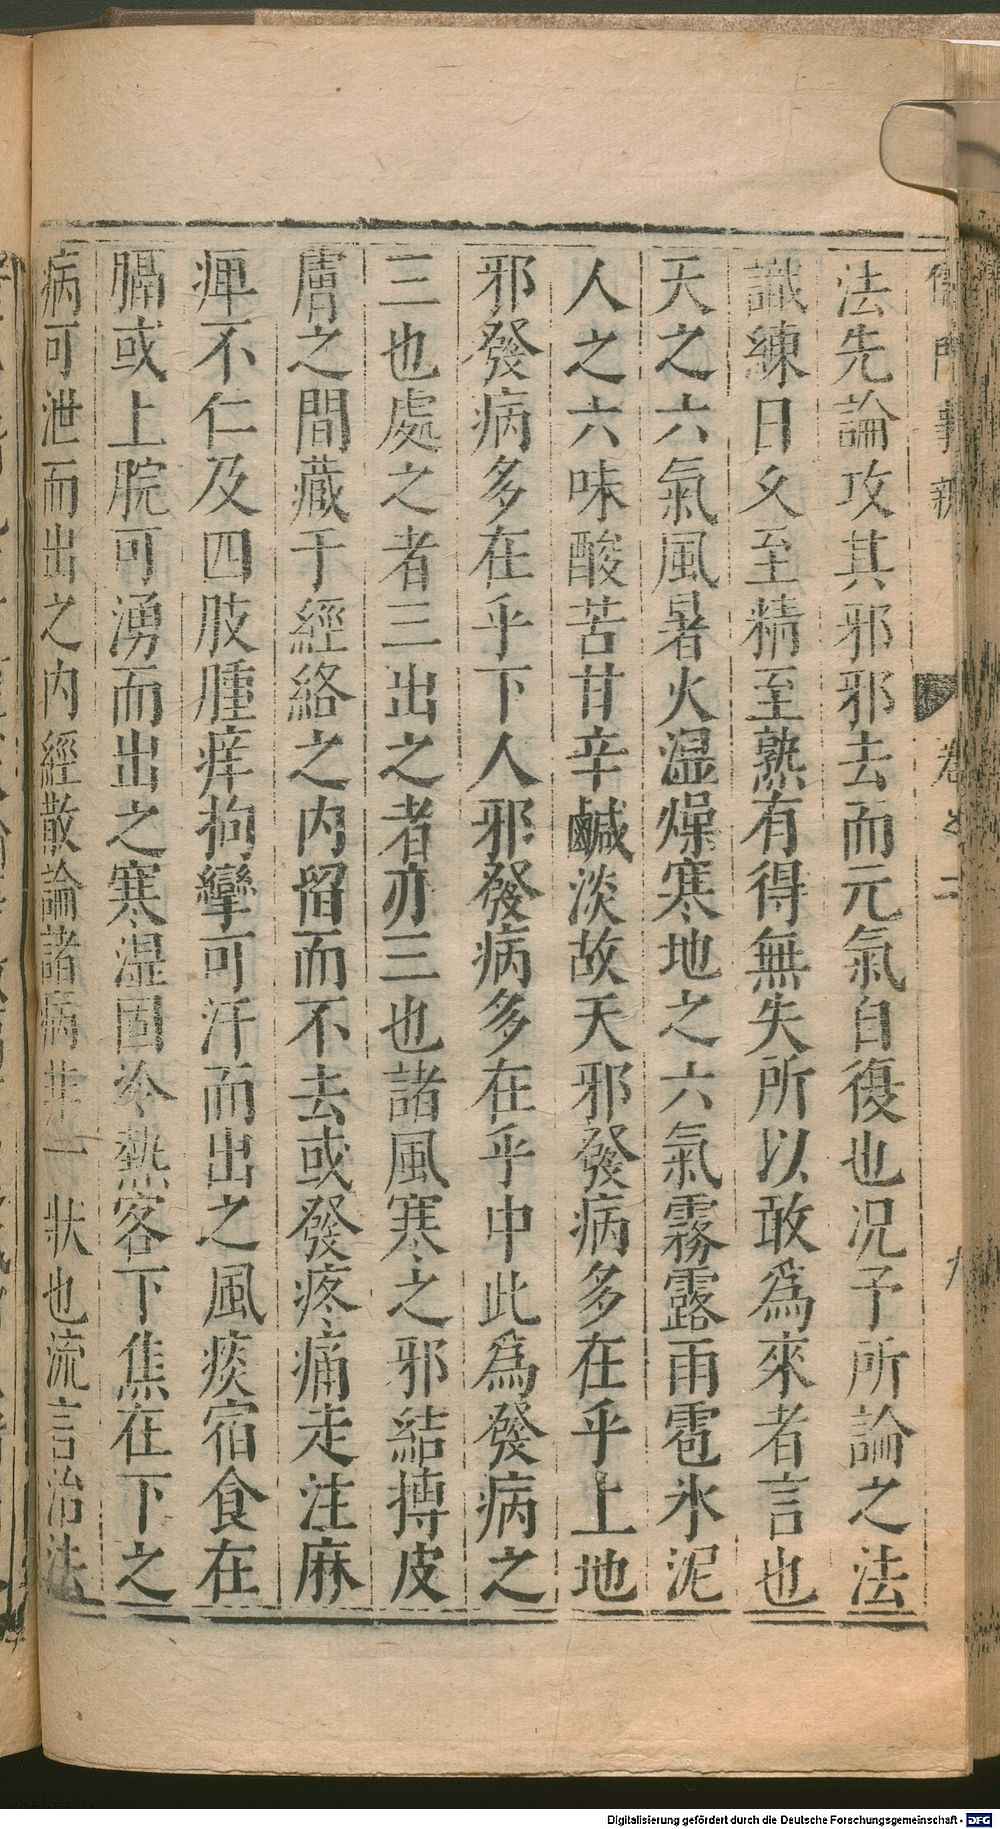 儒門事親 卷之二 九
法先論攻其邪邪去而元氣自復也况予所論之法
識練日久至精至熟有得無失所以敢爲來者言也
天之六氣風暑火湿燥寒地之六氣霧露雨雹氷泥
人之六味酸苦甘辛鹹淡故天邪發病多在乎上地
邪發病多在乎下人邪發病多在乎中此爲發病之
三也處之者三出之者亦三也諸風寒之邪結搏皮
膚之間藏于經絡之内留而不去或發疼痛走注麻
痺不仁及四肢腫痒拘攣可汗而出之風痰宿食在
膈或上脘可湧而出之寒湿固冷熱客下焦在下之
病可泄而出之内經散論諸病非一狀也流言治法
Digitalisierung gefördert durch die Deutsche Forschungsgemeinschaft - DFG